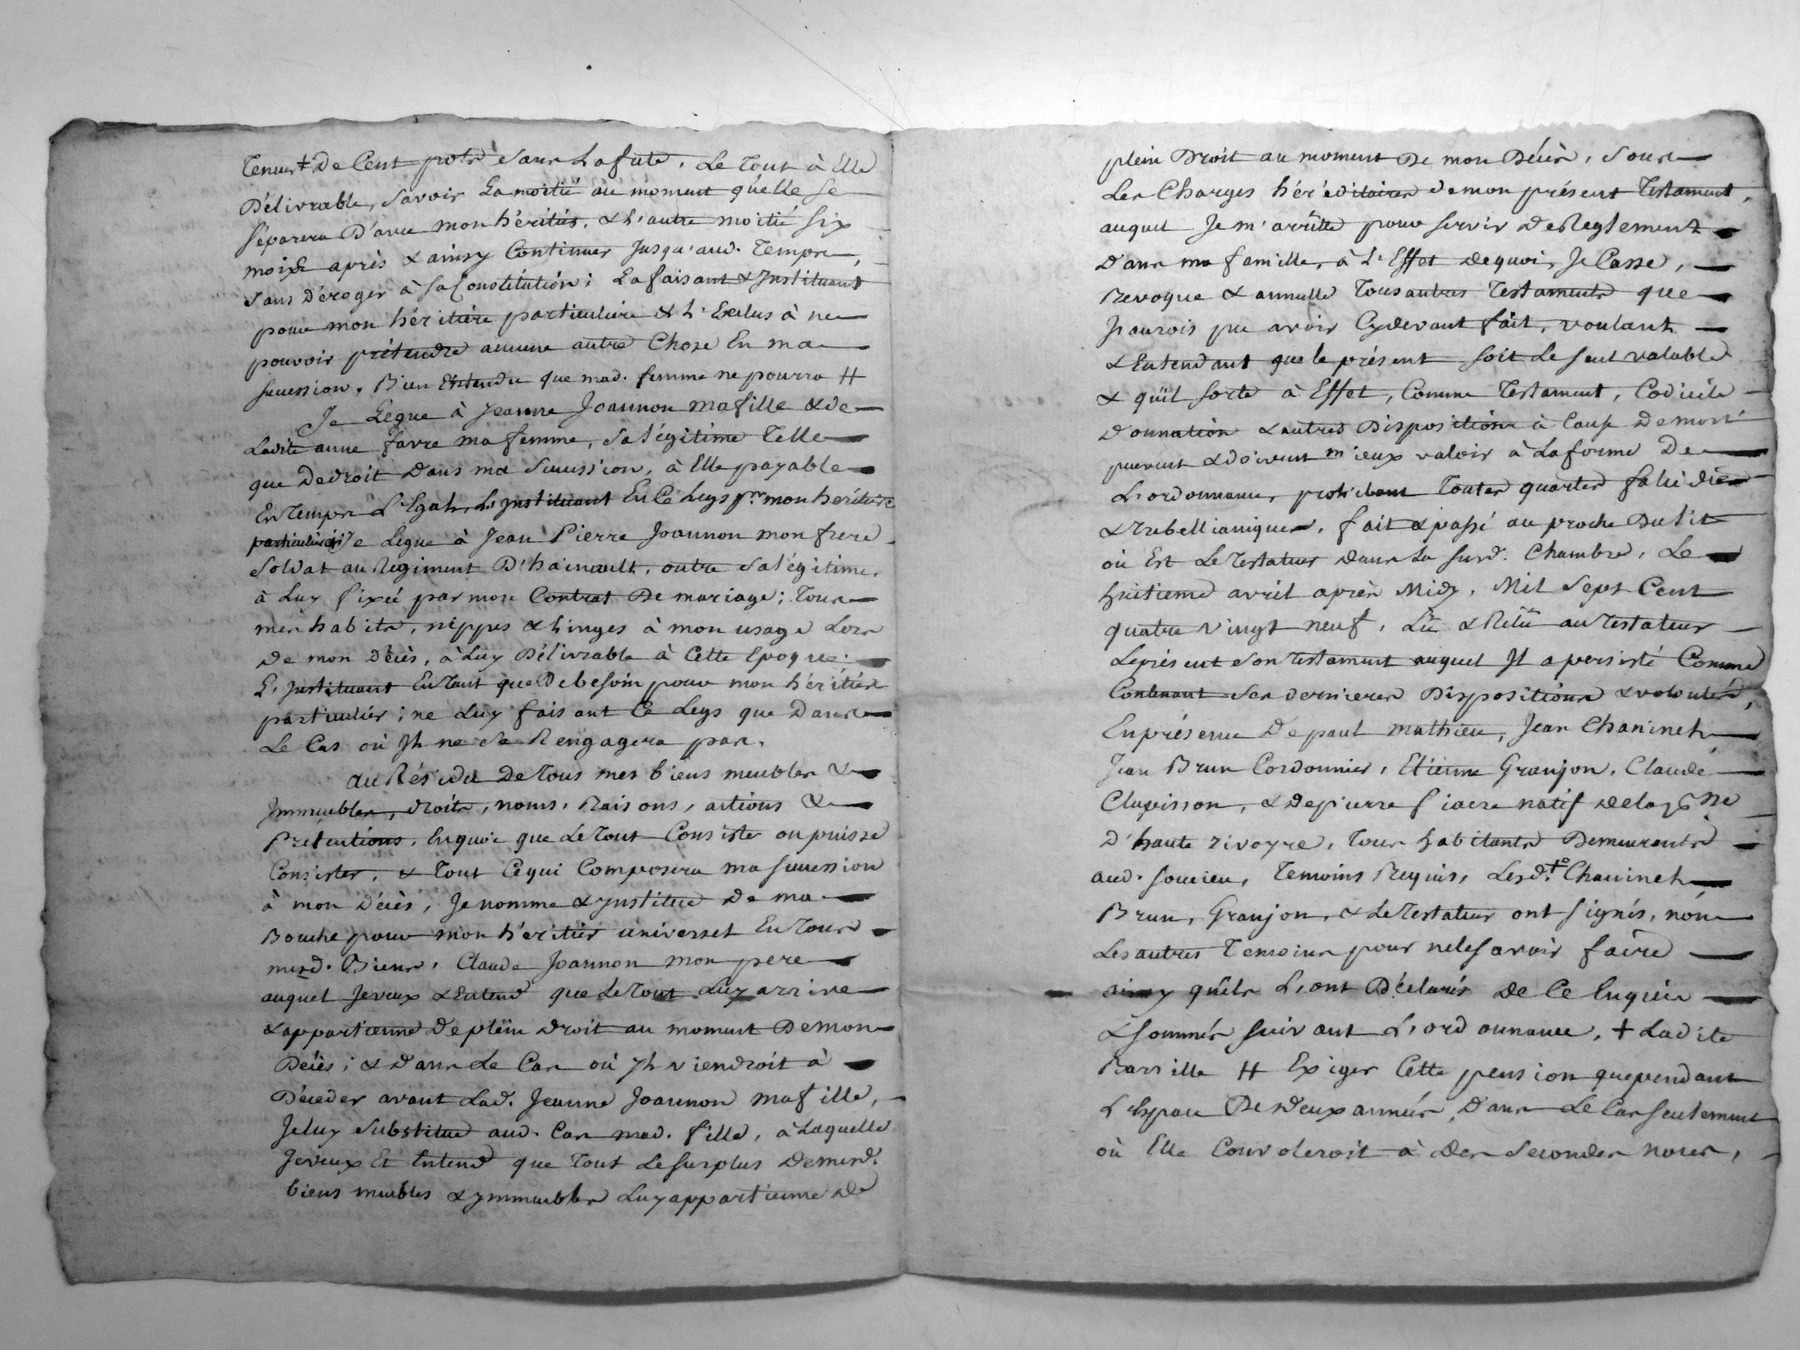 Tenue ‡ De Cent pots sans la fute, Le Tout à Elle
Délivrable, savoir La moitié au moment qu'elle se
séparera D'avec mon héritier, & l'autre moitié six
mois après & ainsy Continuer Jusqu'aud. Temps,
sans déroger à sa Constitution; La faisant & Instituant
pour mon héritiere particuliere & l'Exclus à ne
pouvoir prétendre aucune autre Chose En ma
succession. Bien Entendu que mad. femme ne pourra #
Je Legue à Jeanne Joannon ma fille & de
Ladite anne favre ma femme, sa légitime Telle
que De droit Dans ma Succession, à Elle payable
En Temps L'Egal, L'Instituant En Ce Legs pr. mon héritiere
particuliere; Je Legue à Jean Pierre Joannon mon frere
soldat au Regiment D'hainault, outre sa légitime,
à Luy fixée par mon Contrat De mariage; Tous
mes habits, nippes & linges à mon usage Lors
De mon Décès, à Luy Délivrable à Cette Epoque;
L'Instituant En Tant que De besoin pour mon héritier
particulier; ne Luy faisant Ce Legs que Dans
Le Cas où Il ne Se Rengagera pas.
au Résidu De Tous mes biens meubles &
Immeubles, droits, noms, Raisons, actions &
Prétentions, En quoi que Le Tout Consiste ou puisse
Consister, & Tout Ce qui Composera ma succession
à mon Décès, Je nomme & Institue De ma
Bouche pour mon héritier universel En Tous
mesd. Biens, Claude Joannon mon pere
auquel Je veux & Entend que Le Tout Luy arrive
& appartienne De plein droit au moment De mon
Décès; & Dans Le Cas où Il viendroit à
Déceder avant Lad. Jeanne Joannon ma fille,
Je luy Substitue aud. Cas mad. fille, à Laquelle
Je veux Et Entend que Tout Le surplus De mesd.
biens meubles & ymmeubles Luy appartienne De
plein Droit au moment De mon Décès, Sous
Les Charges héréditaires de mon présent Testament,
auquel Je m'arrête pour servir De Reglement
Dans ma famille, à L'Effet de quoi, Je Casse,
Revoque & annulle Tous autres Testaments que
J'aurois pu avoir Cy devant fait, voulant
& Entendant que le présent soit Le seul valable
& qu'il sorte à Effet, Comme Testament, Codicile
Donnation & autres Dispositions à Cause De mort
peuvent & doivent mieux valoir à La forme De
L'ordonnance, prohibant Toutes quartes falcidie
& Trebellianiques, fait & passé au proche Du lit
où Est Le Testateur dans La susd. Chambre, Le
huitieme avril après Midy, Mil Sept Cent
quatre Vingt neuf, Lû & Relû au Testateur
Le présent Son Testament auquel Il a persisté Comme
Contenant Ses dernieres Dispositions & volontés,
En présence De paul mathieu, Jean Chavinel
Jean Brun Cordonnier, Etienne Granjon, Claude
Clupisson, & De pierre fiacre natif de la psse
D'haute rivoyre, Tous habitants Demeurants
aud. soucieu, Temoins Requis, Lesdts. Chavinel
Brun, Granjon, & Le Testateur ont signés, non
Les autres Temoins pour ne le savoir faire
ainsy qu'ils L'ont Déclarés De Ce Enquis
& sommés suivant L'ordonnance, + Ladite
Barrille # Exiger Cette pension que pendant
L'Espace De deux années, Dans Le Cas seulement
où Elle Convoleroit à des Secondes noces,